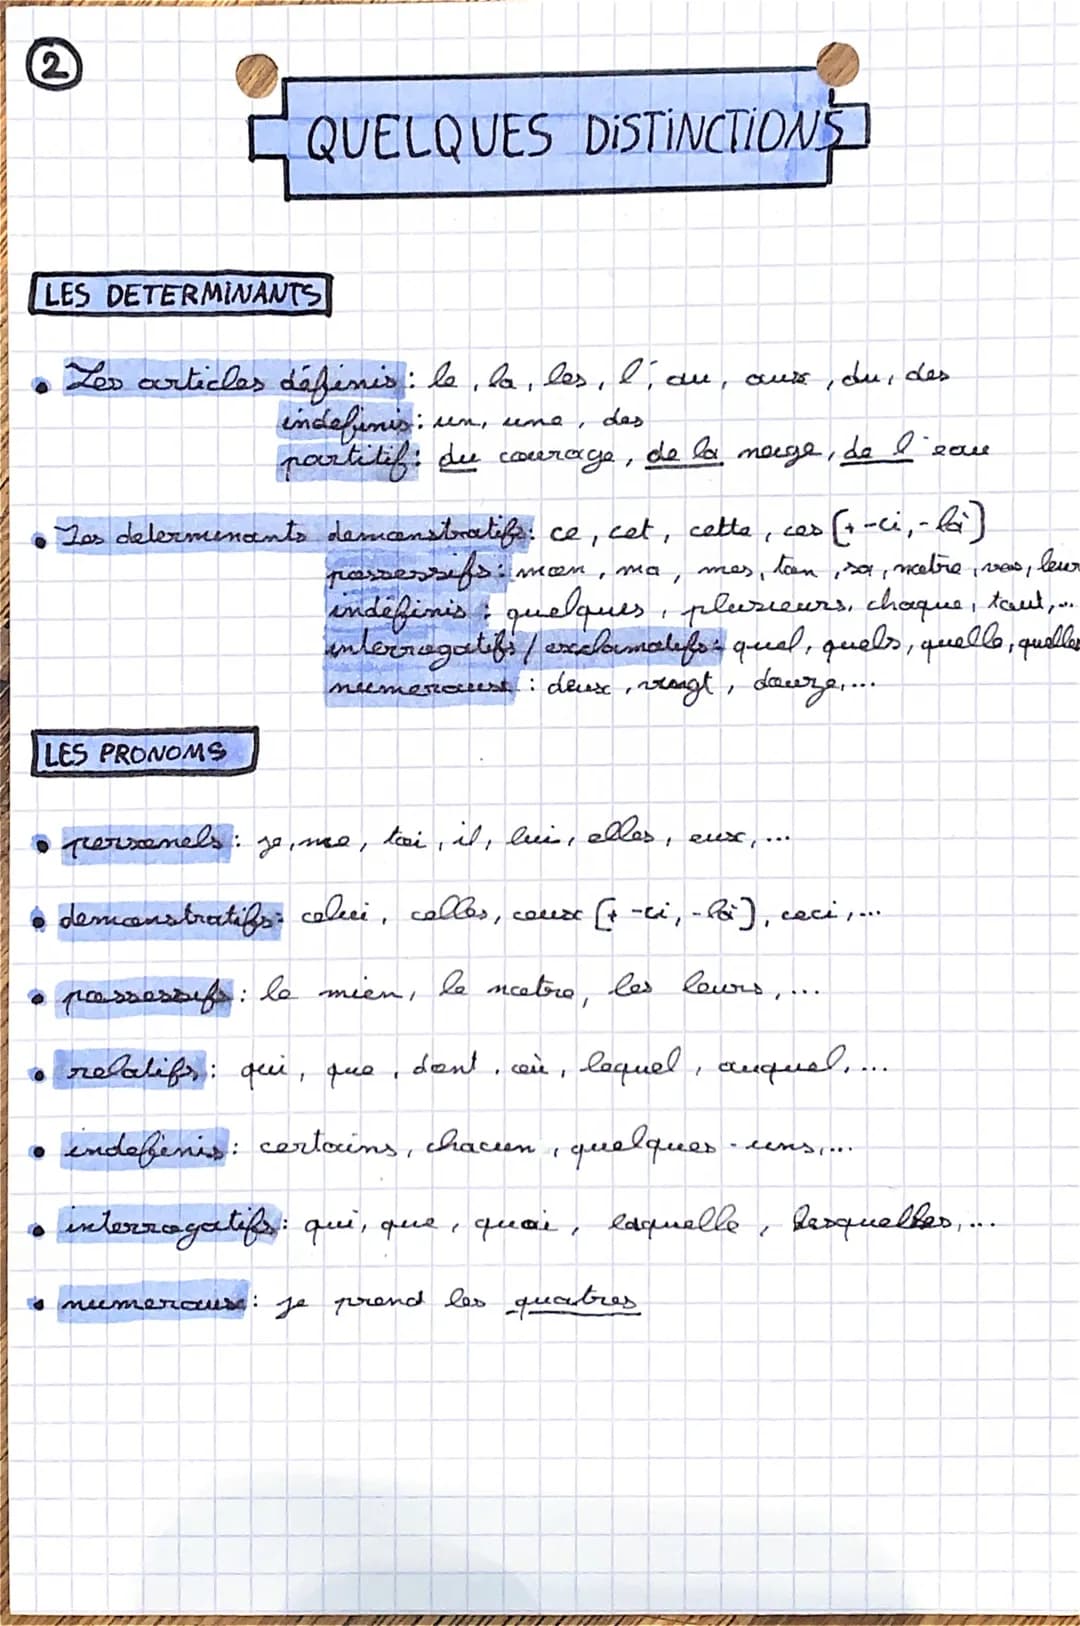 2
QUELQUES DISTINCTIONS
LES DETERMINANTS
• Les articles définis : le, la, les, l', au, aux, du, des
indefinis : un, une, des
partitif : du courage, de la neige, de l'eau
• Les determinants demonstratifs : ce, cet, cette, ces (+ -ci, -là)
possessifs : mon, ma, mes, ton, sa, notre, vos, leur
indéfinis : quelques, plusieurs, chaque, tout,...
interrogatifs / exclamatifs : quel, quels, quelle, quelles
numeraux : deux, vingt, douze,...
LES PRONOMS
• personels : je, me, toi, il, lui, elles, eux,...
• demonstratifs : celui, celles, ceux (+ -ci, -là), ceci,...
• possessifs : le mien, le notre, les leurs,...
• relatifs : qui, que, dont, où, lequel, auquel,...
• indefinis : certains, chacun, quelques-uns,...
• interrogatifs : qui, que, quoi, laquelle, lesquelles,...
• numeraux : je prend les quatres